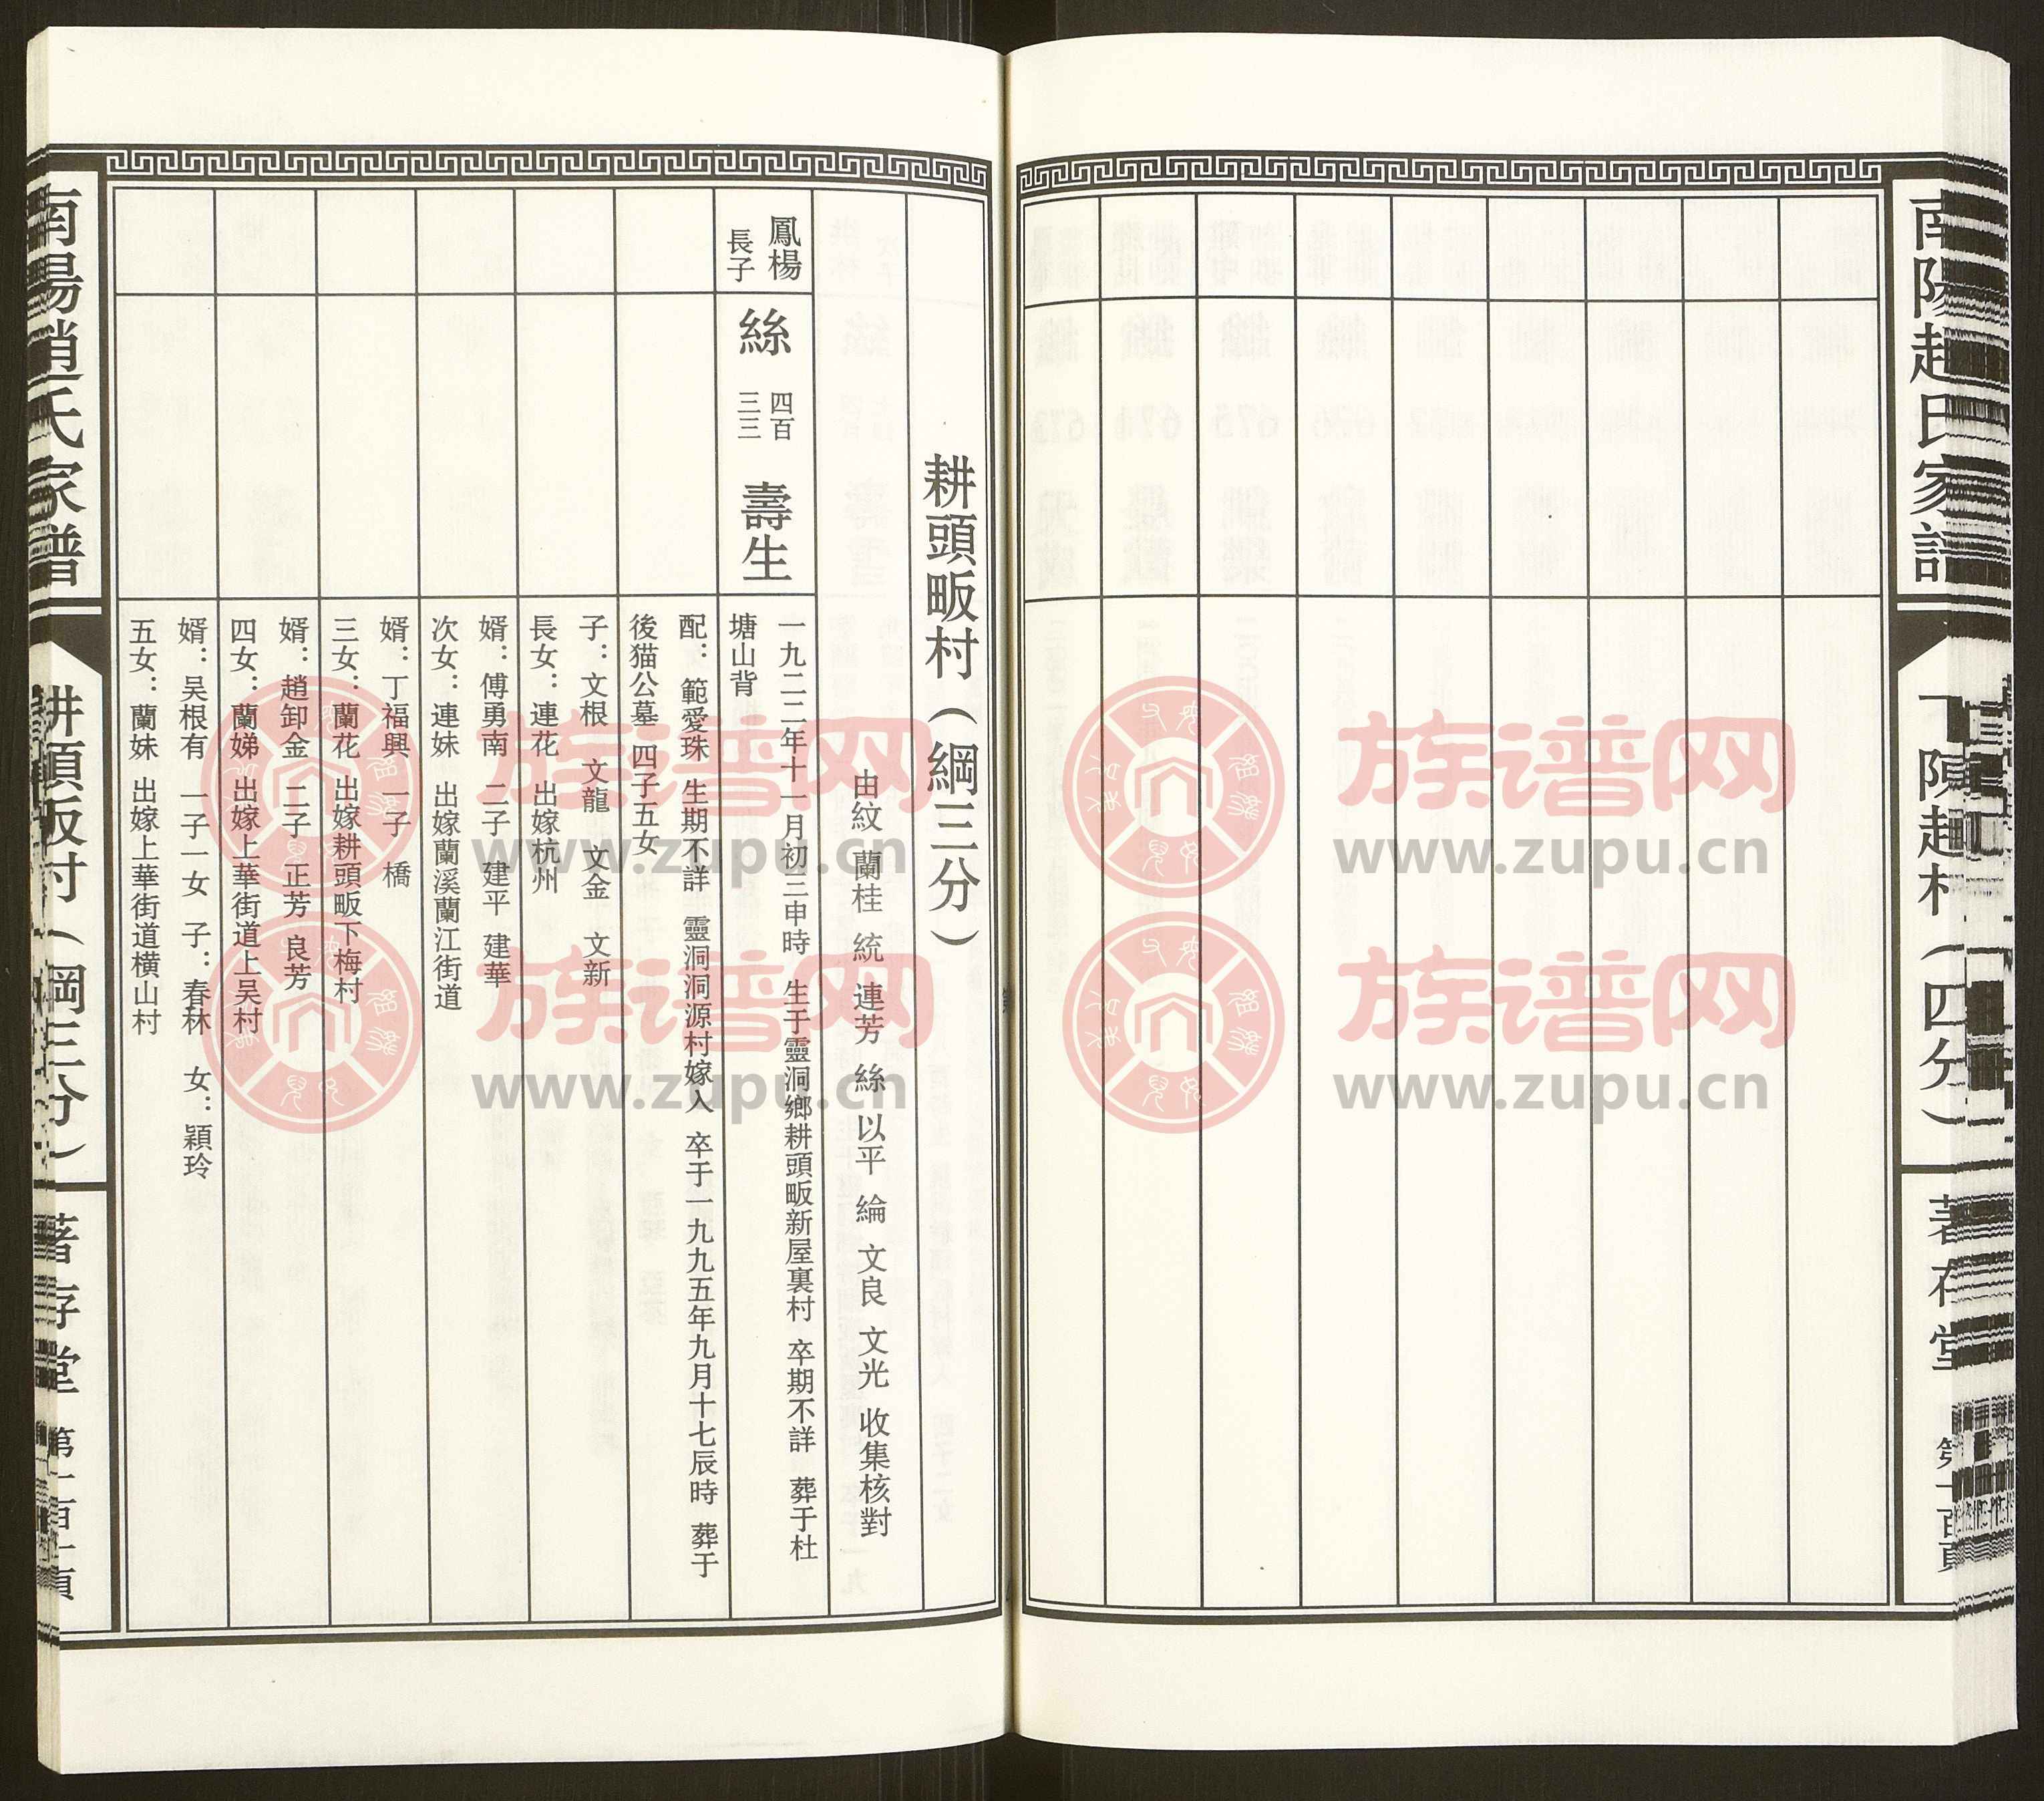 南陽趙氏家譜
下陳趙村（四分）
著存堂
第一百頁
耕頭畈村（綱三分）
由紋 蘭桂 統 連芳 絲 以平 綸 文良 文光 收集核對
鳳楊
長子
絲 四百
三三
壽生
一九二二年十一月初三申時 生于靈洞鄉耕頭畈新屋裏村 卒期不詳 葬于杜
塘山背
配：範愛珠 生期不詳 靈洞洞源村嫁入 卒于一九九五年九月十七辰時 葬于
後猫公墓 四子五女
子：文根 文龍 文金 文新
長女：連花 出嫁杭州
婿：傅勇南 二子 建平 建華
次女：連妹 出嫁蘭溪蘭江街道
婿：丁福興 一子 橋
三女：蘭花 出嫁耕頭畈下梅村
婿：趙卸金 二子 正芳 良芳
四女：蘭娣 出嫁上華街道上吴村
婿：吴根有 一子一女 子：春林 女：穎玲
五女：蘭妹 出嫁上華街道横山村
南陽趙氏家譜
耕頭畈村（綱三分）
著存堂
族谱网
www.zupu.cn
族谱网
www.zupu.cn
族谱网
www.zupu.cn
族谱网
www.zupu.cn